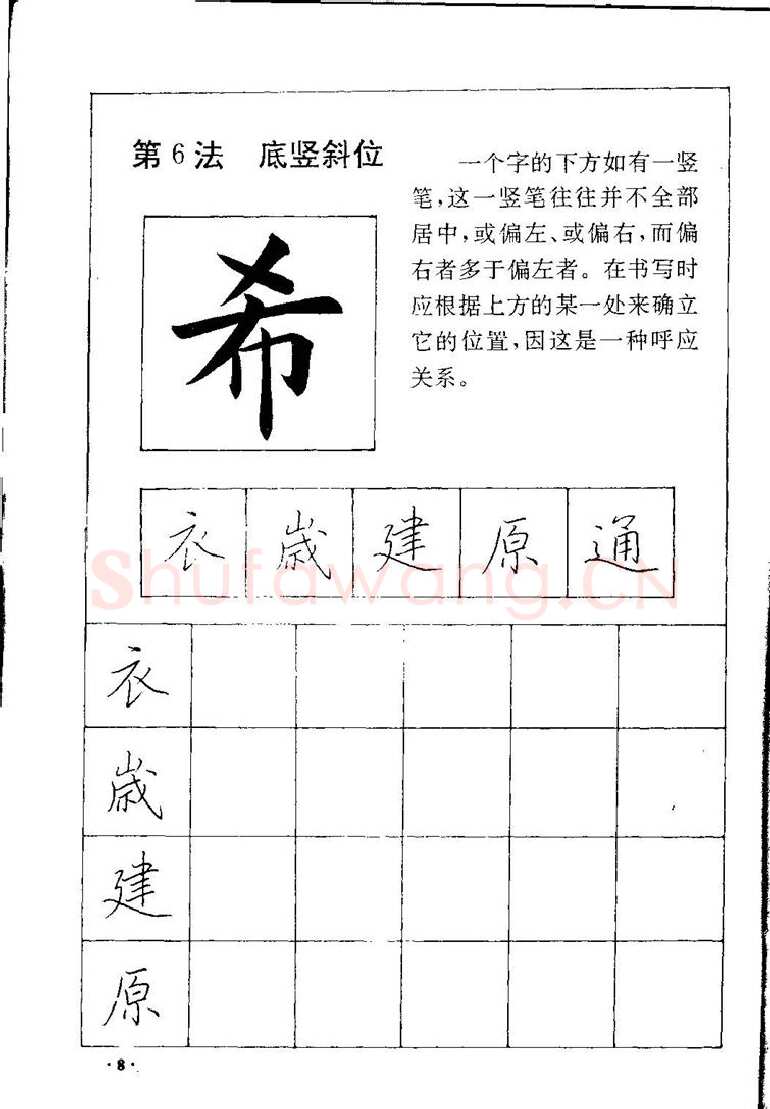 第6法　底竖斜位
一个字的下方如有一竖
笔,这一竖笔往往并不全部
居中,或偏左、或偏右,而偏
右者多于偏左者。在书写时
应根据上方的某一处来确立
它的位置,因这是一种呼应
关系。
希
衣 歳 建 原 通
Shufawang.CN
衣
歳
建
原
·8·